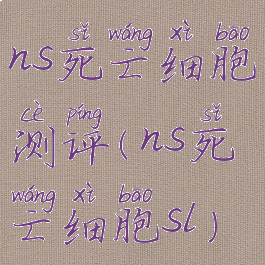 sǐ wáng xì bāo
ns死亡细胞
cè píng sǐ
测评(ns死
wáng xì bāo
亡细胞sl)